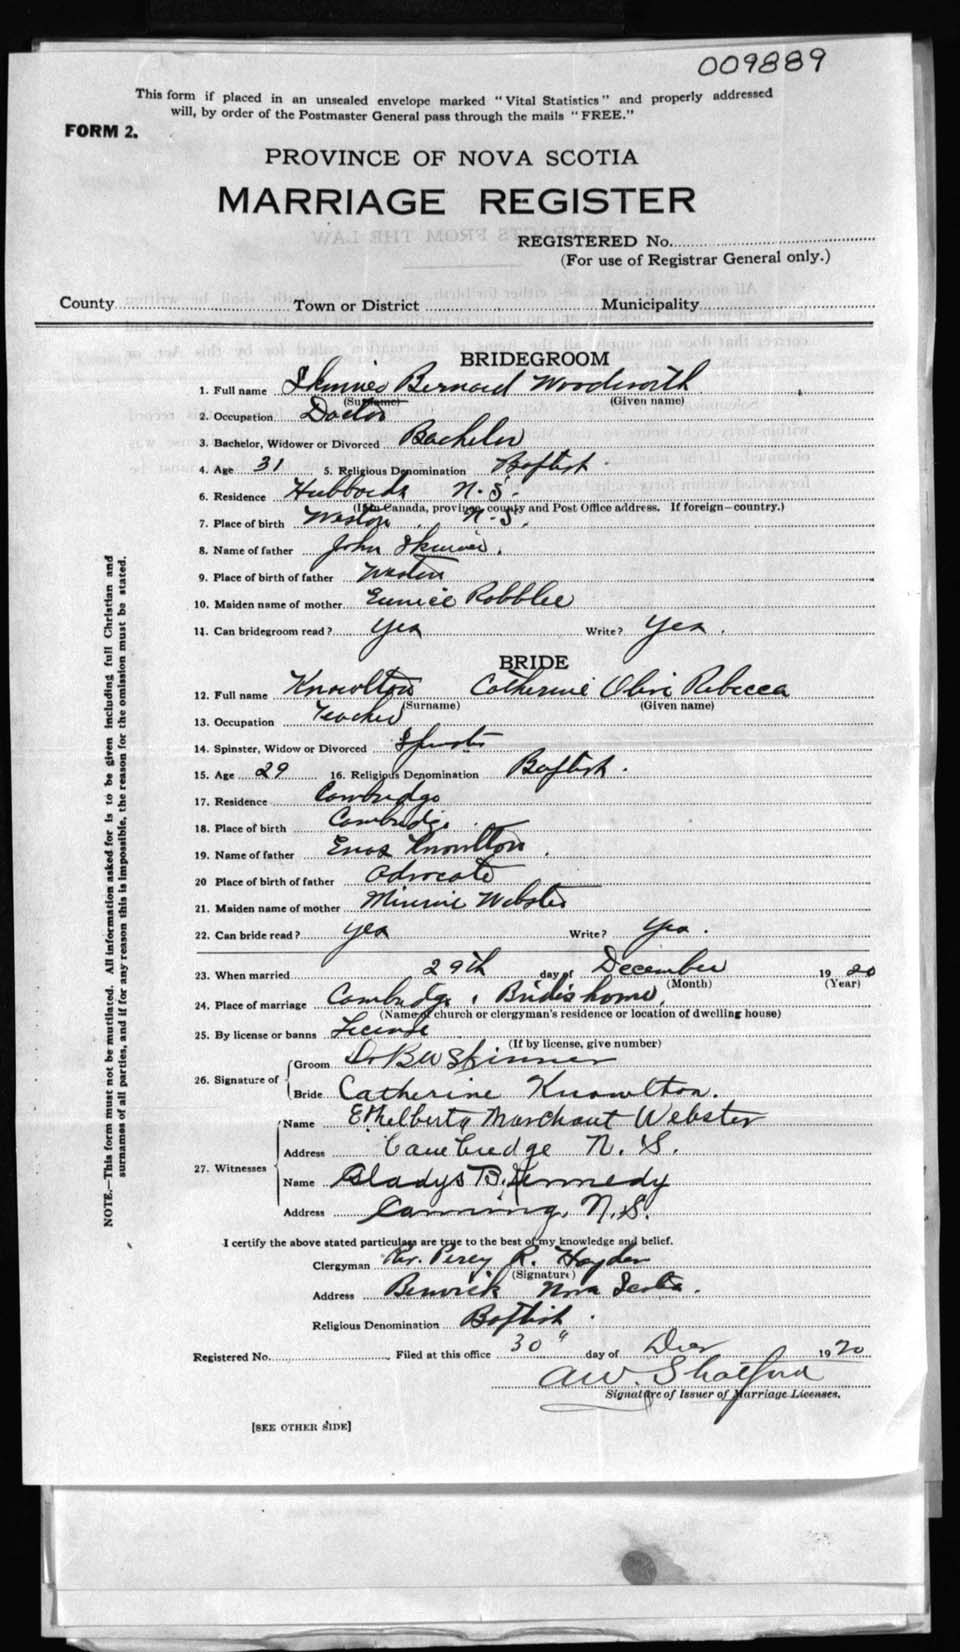 009889
This form if placed in an unsealed envelope marked "Vital Statistics" and properly addressed
will, by order of the Postmaster General pass through the mails "FREE."
FORM 2.
PROVINCE OF NOVA SCOTIA
MARRIAGE REGISTER
REGISTERED No.
(For use of Registrar General only.)
County Town or District Municipality
BRIDEGROOM
1. Full name Skinner Bernard Woodworth
(Surname) (Given name)
2. Occupation Doctor
3. Bachelor, Widower or Divorced Bachelor
4. Age 31 5. Religious Denomination Baptist
6. Residence Hubbards N.S.
(If in Canada, province, county and Post Office address. If foreign—country.)
7. Place of birth Weston, N.S.
8. Name of father John Skinner.
9. Place of birth of father Weston
10. Maiden name of mother Eunice Robblee
11. Can bridegroom read? Yes Write? Yes.
BRIDE
12. Full name Knowlton Catherine Olive Rebecca
(Surname) (Given name)
13. Occupation Teacher
14. Spinster, Widow or Divorced Spinster
15. Age 29 16. Religious Denomination Baptist.
17. Residence Cambridge
18. Place of birth Cambridge.
19. Name of father Enos Knowlton.
20 Place of birth of father Advocate
21. Maiden name of mother Minnie Webster
22. Can bride read? Yes Write? Yes.
23. When married 29th day of December 1920
(Month) (Year)
24. Place of marriage Cambridge, Brides home,
(Name of church or clergyman's residence or location of dwelling house)
25. By license or banns License
(If by license, give number)
26. Signature of
Groom Dr B W Skinner
Bride Catherine Knowlton.
27. Witnesses
Name Ethelberta Marchant Webster
Address Cambridge N. S.
Name Gladys B. Kennedy
Address Canning, N.S.
I certify the above stated particulars are true to the best of my knowledge and belief.
Clergyman Rev. Percy R. Hayden
(Signature)
Address Berwick Nova Scotia.
Religious Denomination Baptist.
Registered No. Filed at this office 30" day of Dec 1920
AW. Shatford
Signature of Issuer of Marriage Licenses.
[SEE OTHER SIDE]
NOTE.—This form must not be mutilated. All information asked for is to be given including full Christian and
surnames of all parties, and if for any reason this is impossible, the reason for the omission must be stated.